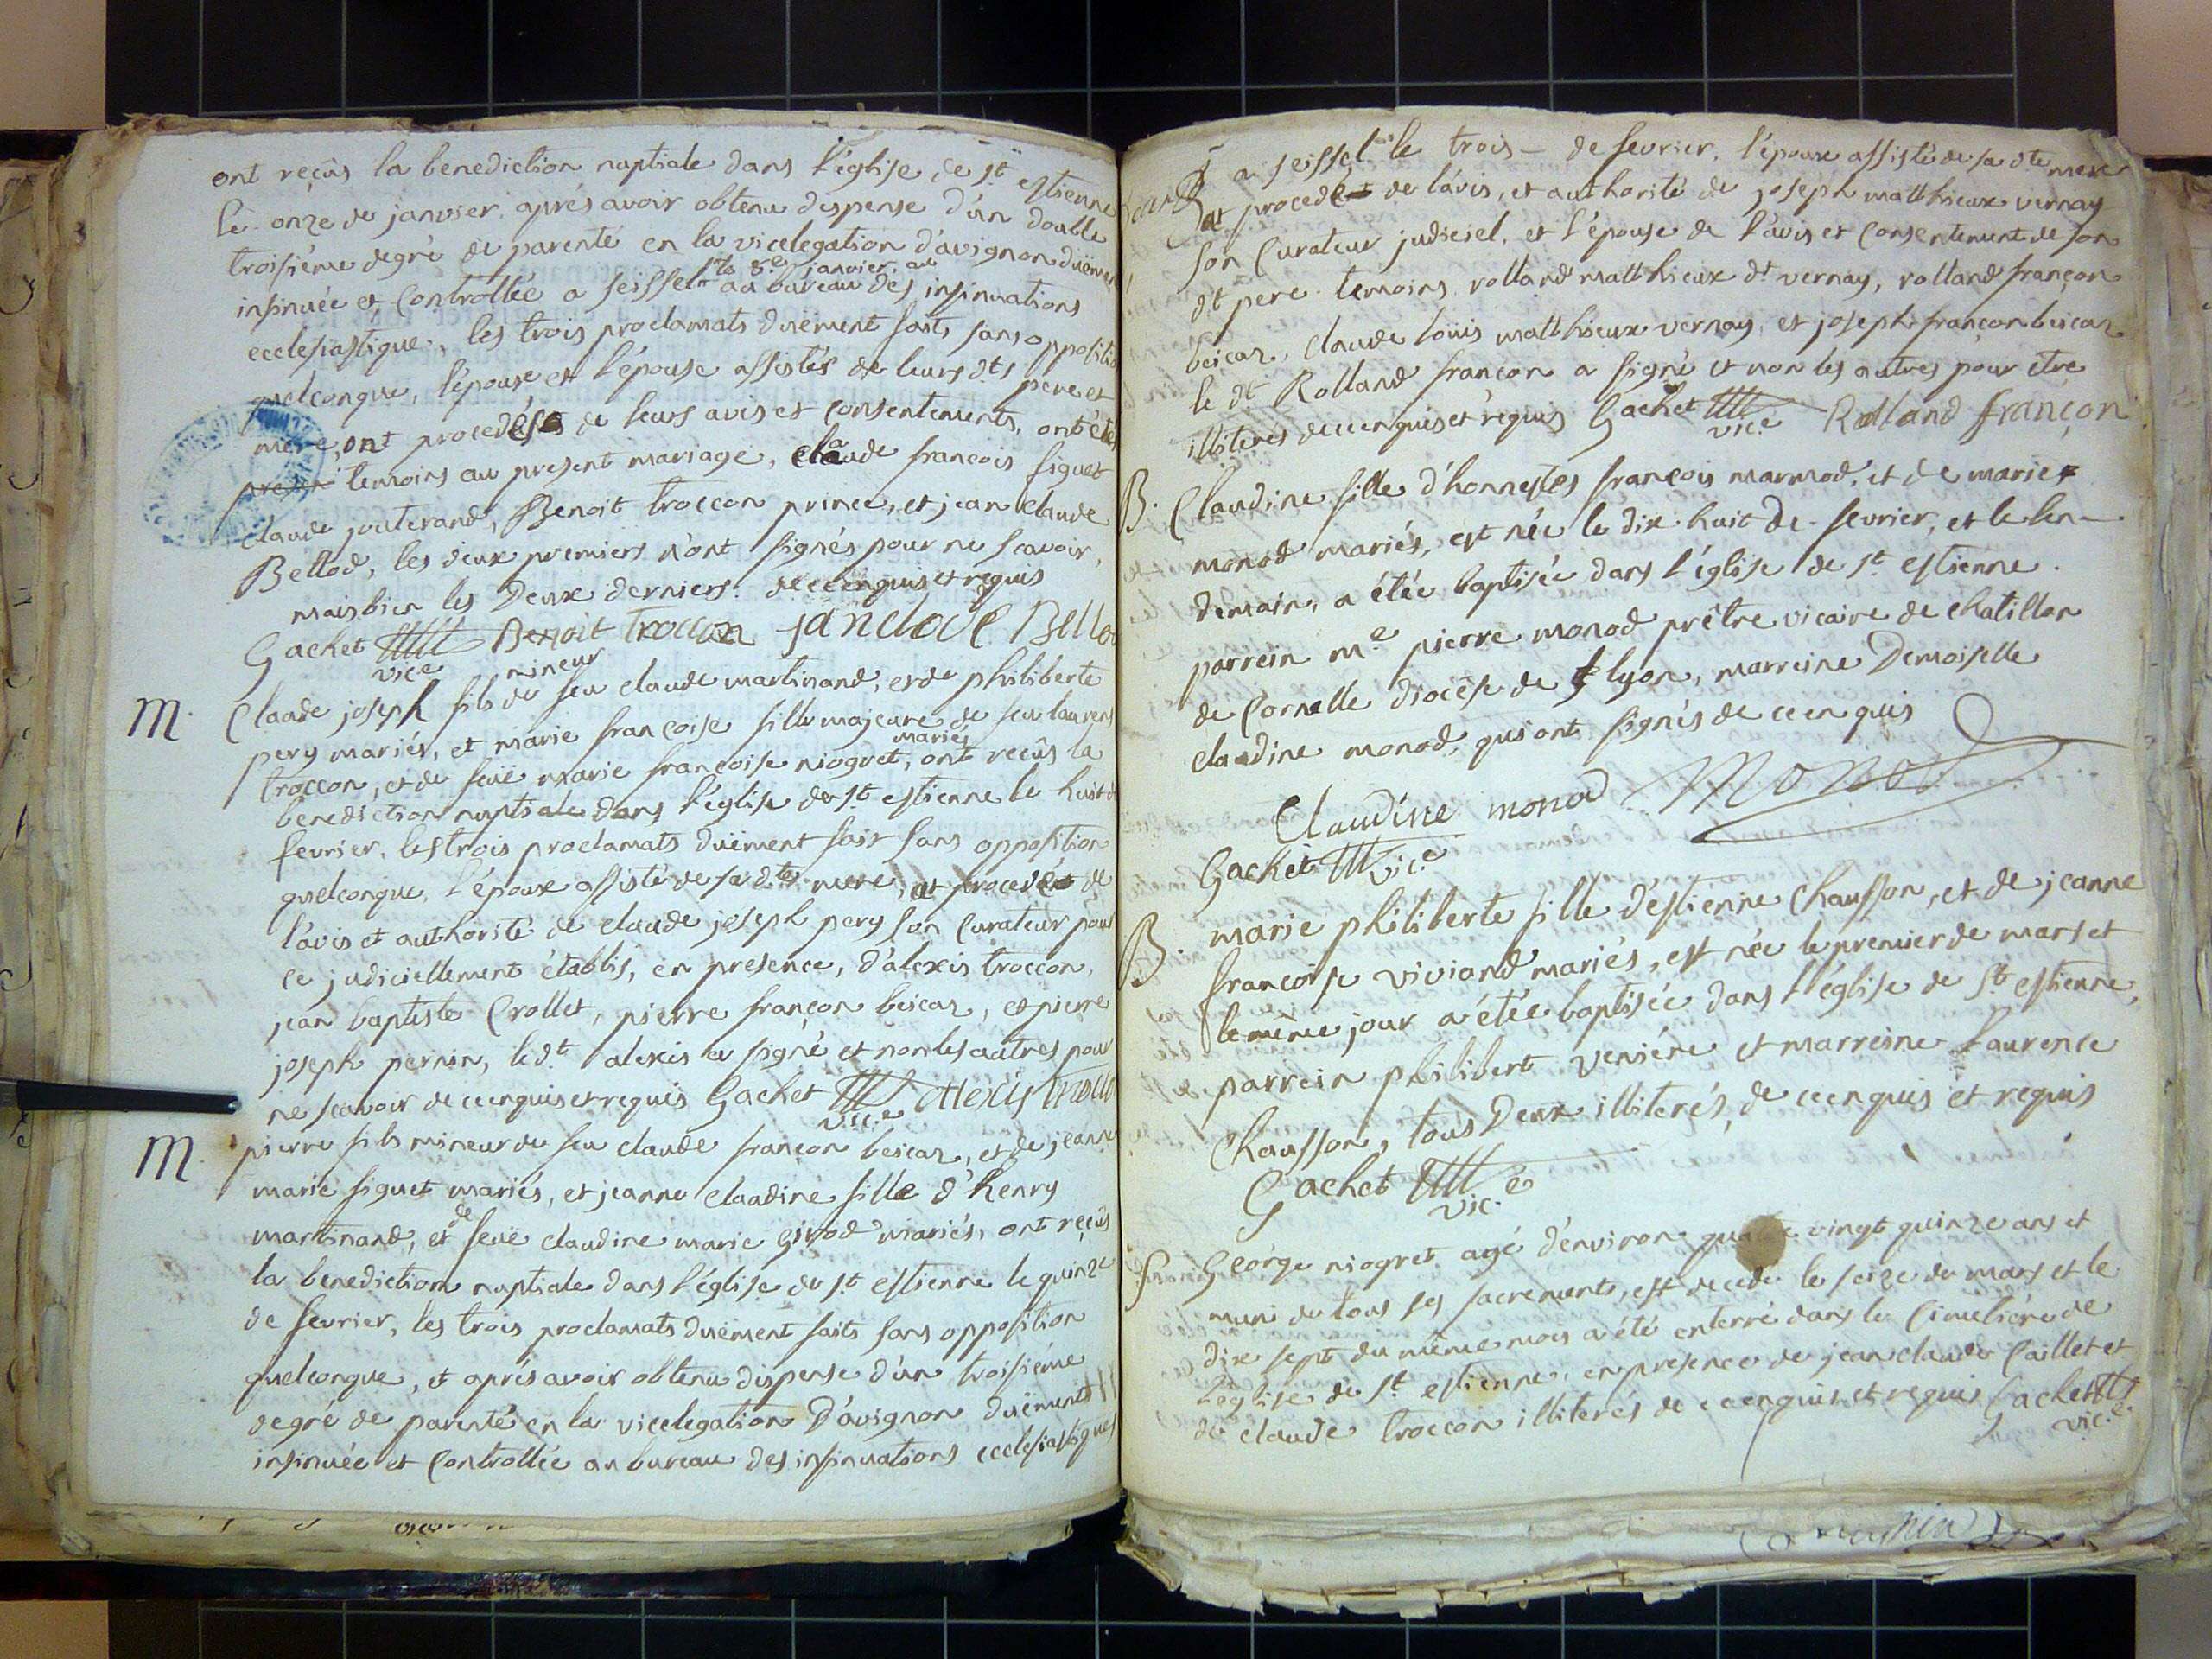 ont reçûs la benediction nuptiale dans l'église de st estienne
le onze de janvier, aprés avoir obtenu dispense d'un double
troisiéme degré de parenté en la vicelegation d'avignon duëment
insinuée et Controllée a seissel le 8.e janvier au bureau des insinuations
ecclesiastique, les trois proclamats duëment faits sans oppositio
quelconque, l'époux et l'épouse assistés de leurs dts pere et
mere, ont procedés de leurs avis et consentements, ont étés
temoins au present mariage, claude francois figuet
claude jouterand, Benoit troccon prince, et jean claude
Bellod, les deux premiers n'ont signés pour ne scavoir,
mais bien les Deux derniers. de ce enquis et requis
Gachet vice Benoit troccon janclode Bello
M. Claude joseph fils mineur de feu claude martinand, et de philiberte
pery mariés, et marie francoise fille majeure de feu laurens
troccon, et de feuë marie francoise niogret, mariés ont reçûs la
benediction nuptiale dans l'église de st estienne le huit de
fevrier, les trois proclamats duëment fait sans opposition
quelconque, l'époux assisté de sa dte mere, at procedé de
l'avis et authorité de claude joseph pery son Curateur pour
ce judiciellement établis, en presence, d'alexis troccon,
jean baptiste Crollet, pierre françon beicaz, et pierre
joseph pernin, le dt alexis a signé et non les autres pour
ne scavoir de ce enquis et requis Gachet vic.e alexis trocco
M. pierre fils mineur de feu claude françon beicaz, et de jeanne
marie figuet mariés, et jeanne claudine fille d'henry
martinand, et de feuë claudine marie Girod mariés, ont reçûs
la benediction nuptiale dans l'église de st estienne le quinze
de fevrier, les trois proclamats duëment faits sans opposition
quelconque, et aprés avoir obtenu dispense d'un troisiéme
degré de parenté en la vicelegation D'avignon duëment
insinuée et Controllée au bureau des insinuations ecclesiastiques
a seissel le trois - de fevrier, l'époux assisté de sa dte mere
at procedé de l'avis, et authorité de joseph matthieux vernay
son Curateur judiciel, et l'épouse de l'avis et Consentement de son
dt pere. temoins rolland matthieux dt vernay, rolland françon
beicaz, claude loüis matthieux vernay, et joseph françon beicaz
le dt Rolland françon a signé et non les autres pour etre
illiterés de ce enquis et requis Gachet vic.e Rolland françon
B. Claudine fille d'honnestes françois marmod, et de marie
monod mariés, est née le dix huit de fevrier, et le len-
demain, a étée baptisée dans l'église de st estienne.
parrein m.e pierre monod prêtre vicaire de chatillon
de Cornelle diocése de lyon, marreine Demoiselle
claudine monod, qui ont signés de ce enquis
Claudine monod Monod
Gachet vic.e
B. marie philiberte fille d'estienne Chausson, et de jeanne
francoise viviand mariés, est née le premier de mars et
le même jour a étée baptisée dans l'église de st estienne,
parrein philibert veniére et marreine laurence
Chausson, tous Deux illiterés, de ce enquis et requis
Gachet vic.e
S. George niogret agé d'environ qua vingt quinze ans et
muni de tous ses sacrements, est decedé le seize de mars et le
dix sept du même mois a été enterré dans le Cimetiére de
l'église de st estienne, en presence de jean claude Caillet et
de claude troccon illiterés de ce enquis et requis Gachet
vic.e